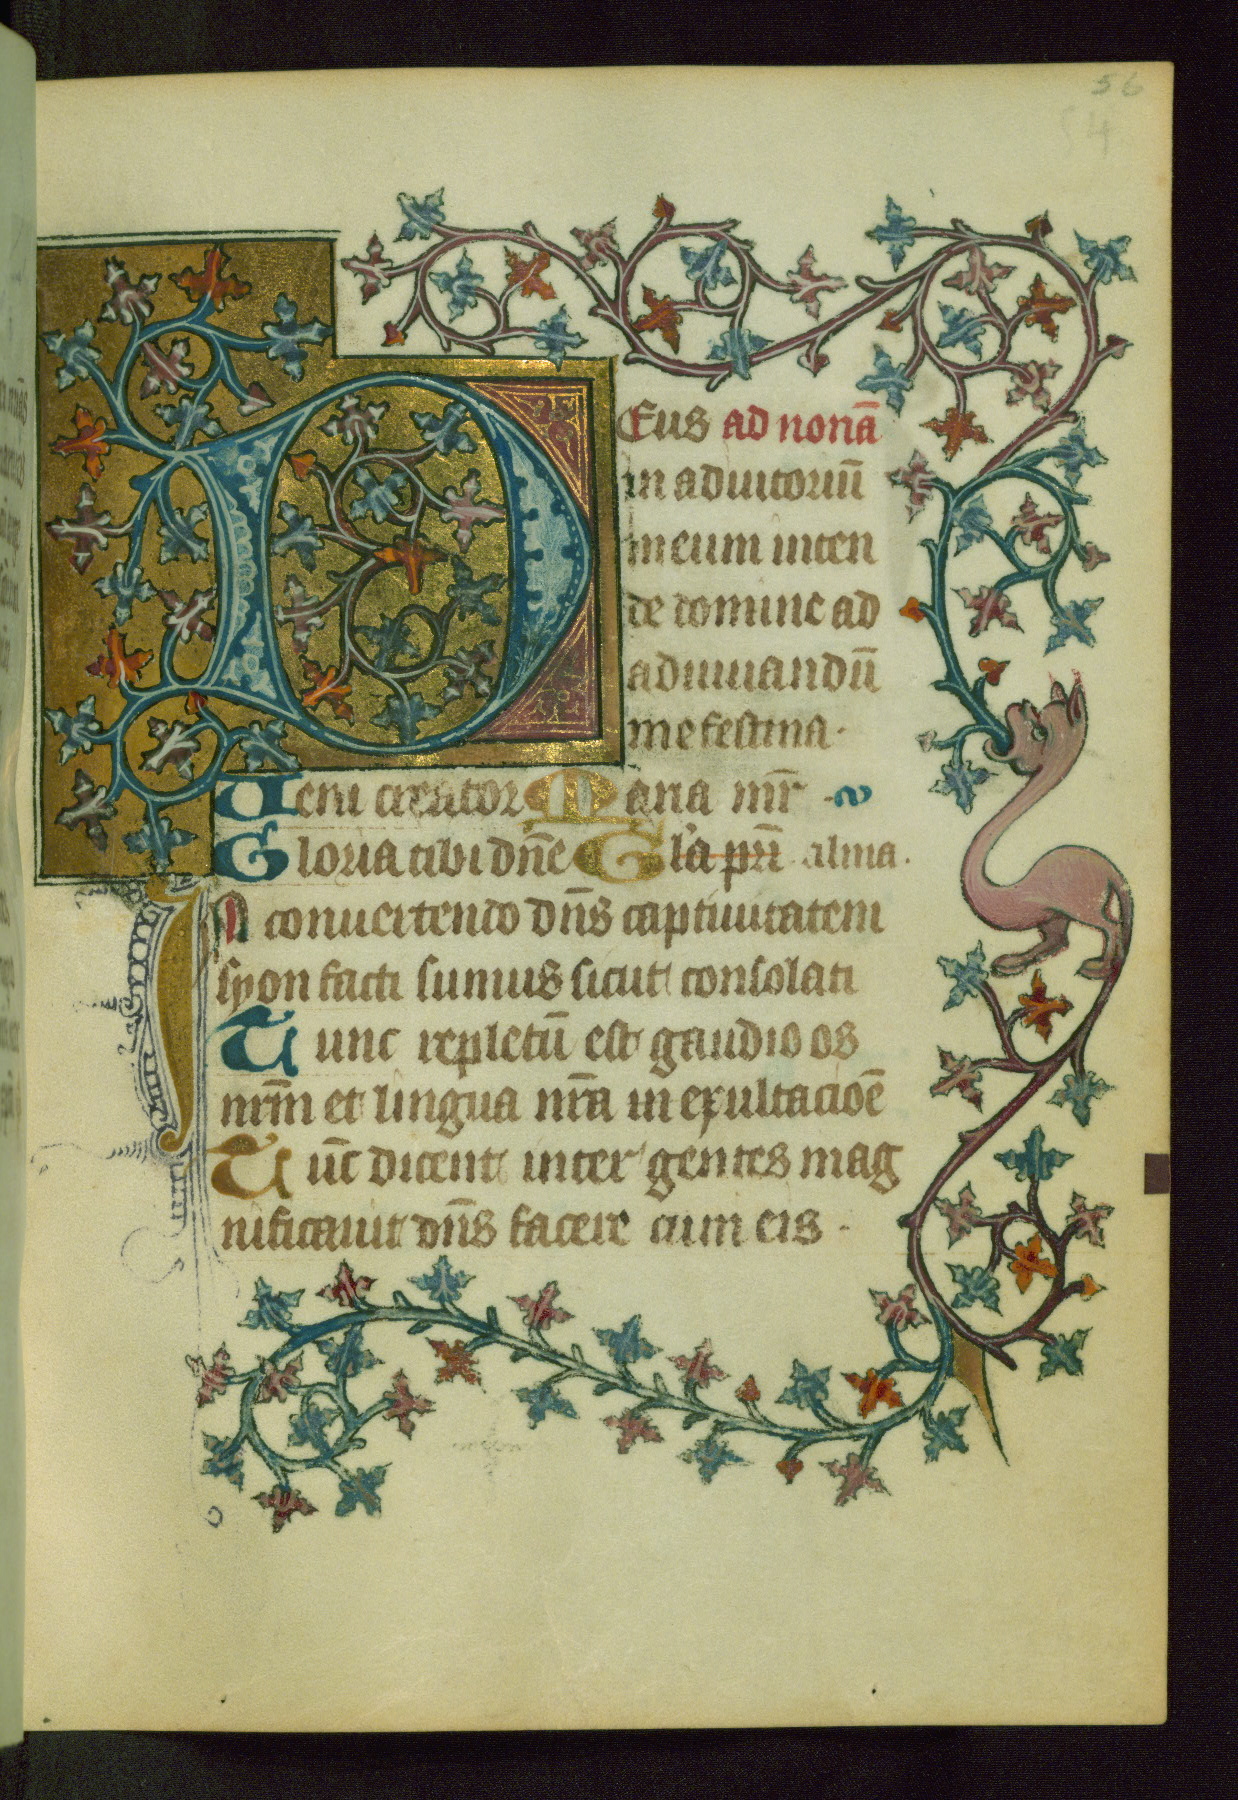 56
54
DEus ad nonā
in adiutoriū
meum inten
de domine ad
adiuuandū
me festina·
Ueni creator Maria mr̄
Gloria tibi dn̄e Gl'a pr̄i alma.
IN conuertendo dn̄s captiuitatem
syon facti sumus sicut consolati
Tunc repletū est gaudio os
nr̄m et lingua nr̄a in exultacioē
Tūc dicent inter gentes mag
nificauit dn̄s facere cum eis·